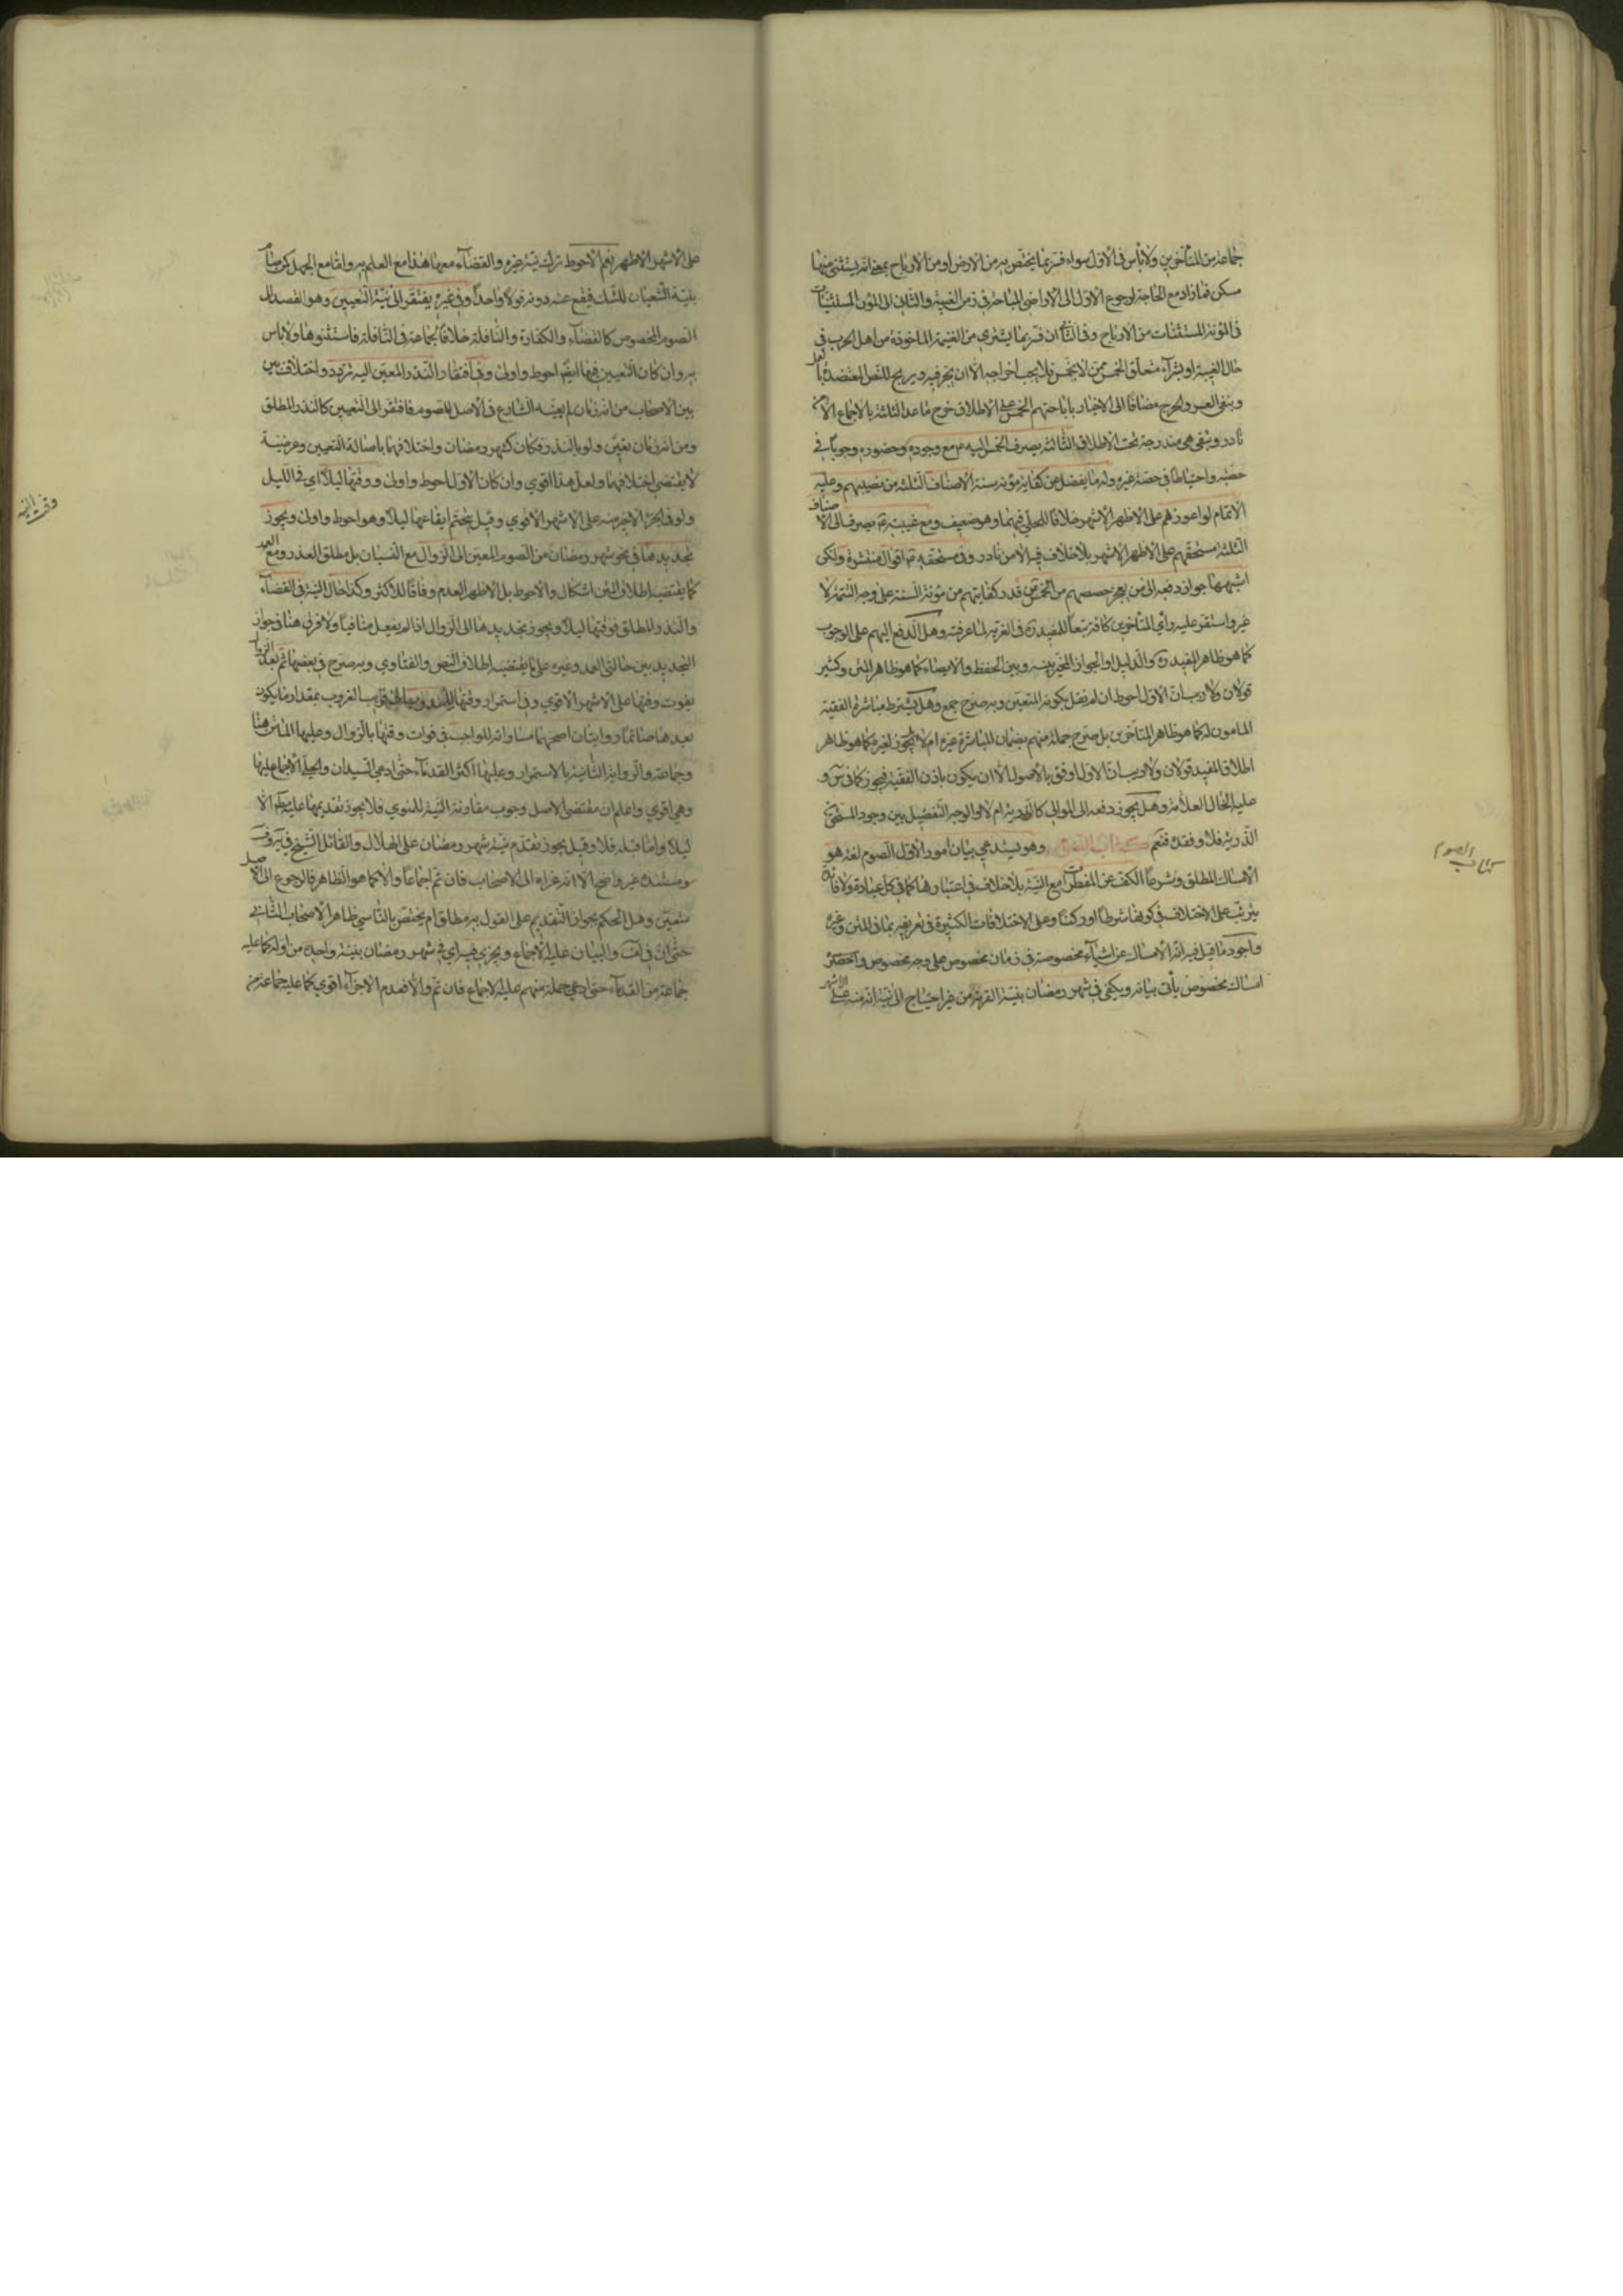 جماعة من المتأخرين ولا بأس في الأول سواء فسر بما يختص به من الأرض او من الأرباح بمعنى انه يستثنى منها
مسكن فما زاد مع الحاجة لرجوع الأول الى الأراضي المباحة في زمن الغيبة والثاني الى المؤن المستثنيات
في المؤنة المستثنات من الأرباح وفي الثالث ان فسر بما يشترى من الغنيمة المأخوذة من اهل الحرب في
حال الغيبة او بشراء متعلق الخمس ممن لا يخمس فلا يجب اخراجه الا ان يتجر فيه ويربح للنص المعتضد
وبنفي العسر والحرج مضافا الى الاخبار باباحتهم الخمس على الاطلاق خرج ما عدا الثلثة بالاجماع
نادر وبقي هي مندرجة تحت الاطلاق الثالثة يصرف الخمس اليه مع وجوده وحضوره وجوبا في
حصته واحتياطا في حصة غيره وله ما يفضل عن كفاية مؤنة سنة الأصناف الثلثة من نصيبهم وعليه
الاتمام لو اعوزهم على الأظهر الأشهر خلافا للحلي فيهما وهو ضعيف ومع غيبته يصرف الى الأصناف
الثلثة مستحقهم على الأظهر الأشهر بلا خلاف فيه الا من نادر وفي مستحقه اقوال منتشرة ولكن
اشبهها جواز دفعه الى من يعجز حصصهم من الخمس عن قدر كفايتهم من مؤنة السنة على وجه التتمة لا
غير واستقر عليه رأي المتأخرين كافة تبعا للمفيد في الغرية لما عرفته وهل الدفع اليهم على الوجوب
كما هو ظاهر المفيد والدليل او الجواز المخير بينه وبين الحفظ والايصاء كما هو ظاهر المتن وكثير
قولان ولا ريب ان الأول احوط ان لم نقل بكونه المتعين وبه صرح جمع وهل يشترط مباشرة الفقيه
المأمون له كما هو ظاهر المتأخرين بل صرح جملة منهم بضمان المباشر غيره ام لا بل يجوز لغيره كما هو ظاهر
اطلاق المفيد قولان ولا ريب ان الأول اوفق بالأصول الا ان يكون باذن الفقيه فيجوز كما في
عليه الخال العلامة وهل يجوز دفعه الى الموالي كالذرية ام لا والوجه التفصيل بين وجود المستحق
الذرية فلا وفقده فنعم كتاب الصوم وهو يستدعي بيان امور الأول الصوم لغة هو
الامساك المطلق وشرعا الكف عن المفطرات مع النية بلا خلاف في اعتبارها كما في كل عبادة ولا فائدة
يترتب على الاختلاف في كونها شرطا او ركنا وعلى الاختلافات الكثيرة في تعريفه بما في المتن وغيره
واجود ما قيل فيه انه الامساك عن اشياء مخصوصة في زمان مخصوص على وجه مخصوص
امساك مخصوص يأتي بيانه ويكفي في شهر رمضان بنية القربة من غير احتياج الى نية انه منه على
كتاب الصوم
على الأشهر الأظهر نعم الأحوط ترك نية غيره والقضاء معها هذا مع العلم به واما مع الجهل كمن صام
بنية الشعبان للشك فيقع عنه دونه قولا واحدا وفي غيره يفتقر الى نية التعيين وهو القصد الى
الصوم المخصوص كالقضاء والكفارة والنافلة خلافا لجماعة في النافلة فاستثنوها ولا بأس
به وان كان التعيين فيها ايضا احوط واولى وفي افتقار النذر المعين اليه تردد واختلاف بين
بين الأصحاب من انه زمان لم يعينه الشارع في الأصل للصوم فافتقر الى التعيين كالنذر المطلق
ومن انه زمان تعين ولو بالنذر فكان كشهر رمضان واختلافهما باصالة التعيين وعرضيته
لا يقتضي اختلافهما ولعل هذا اقوى وان كان الأول احوط واولى ووقتها ليلا اي في الليل
ولو في الجزء الأخير منه على الأشهر الأقوى وقيل يتحتم ايقاعها ليلا وهو احوط واولى ويجوز
تجديدها في نحو شهر رمضان من الصوم المعين الى الزوال مع النسيان بل مطلق العذر ومع العمد
كما يقتضيه اطلاق المتن اشكال والأحوط بل الأظهر العدم وفاقا للأكثر وكذا حال النية في القضاء
والنذر المطلق فوقتها ليلا ويجوز تجديدها الى الزوال اذا لم يفعل منافيا ولا فرق هنا في جواز
التجديد بين حالتي العمد وغيره على ما يقتضيه اطلاق النص والفتاوى وبه صرح في بعضها ثم بعد الزوال
يفوت وقتها على الأشهر الأقوى وفي استمرار وقتها الغروب بمقدار ما يكون
بعدها صائما روايتان اصحهما مساواته للواجب في فوات وقتها بالزوال وعليها الماتن هنا
وجماعة والرواية الثانية بالاستمرار وعليها اكثر القدماء حتى ادعى السيدان والحلي الاجماع عليها
وهي اقوى واعلم ان مقتضى الأصل وجوب مقارنة النية للمنوي فلا يجوز تقديمها عليه الا
ليلا واما قبله فلا وقيل يجوز تقدم نية شهر رمضان على الهلال والقائل الشيخ في
ومستنده غير واضح الا انه عزاه الى الأصحاب فان تم اجماعا والا كما هو الظاهر فالرجوع الى الأصل
متعين وهل الحكم بجواز التقديم على القول به مطلق ام يختص بالناسي ظاهر الأصحاب الثاني
حتى ان في والبيان عليه الاجماع ويجزي فيه اي في شهر رمضان بنية واحدة من اوله كما عليه
جماعة من القدماء حتى ادعى جملة منهم عليه الاجماع فان تم والا فعدم الاجزاء اقوى كما عليه جماعة من
وقت النية